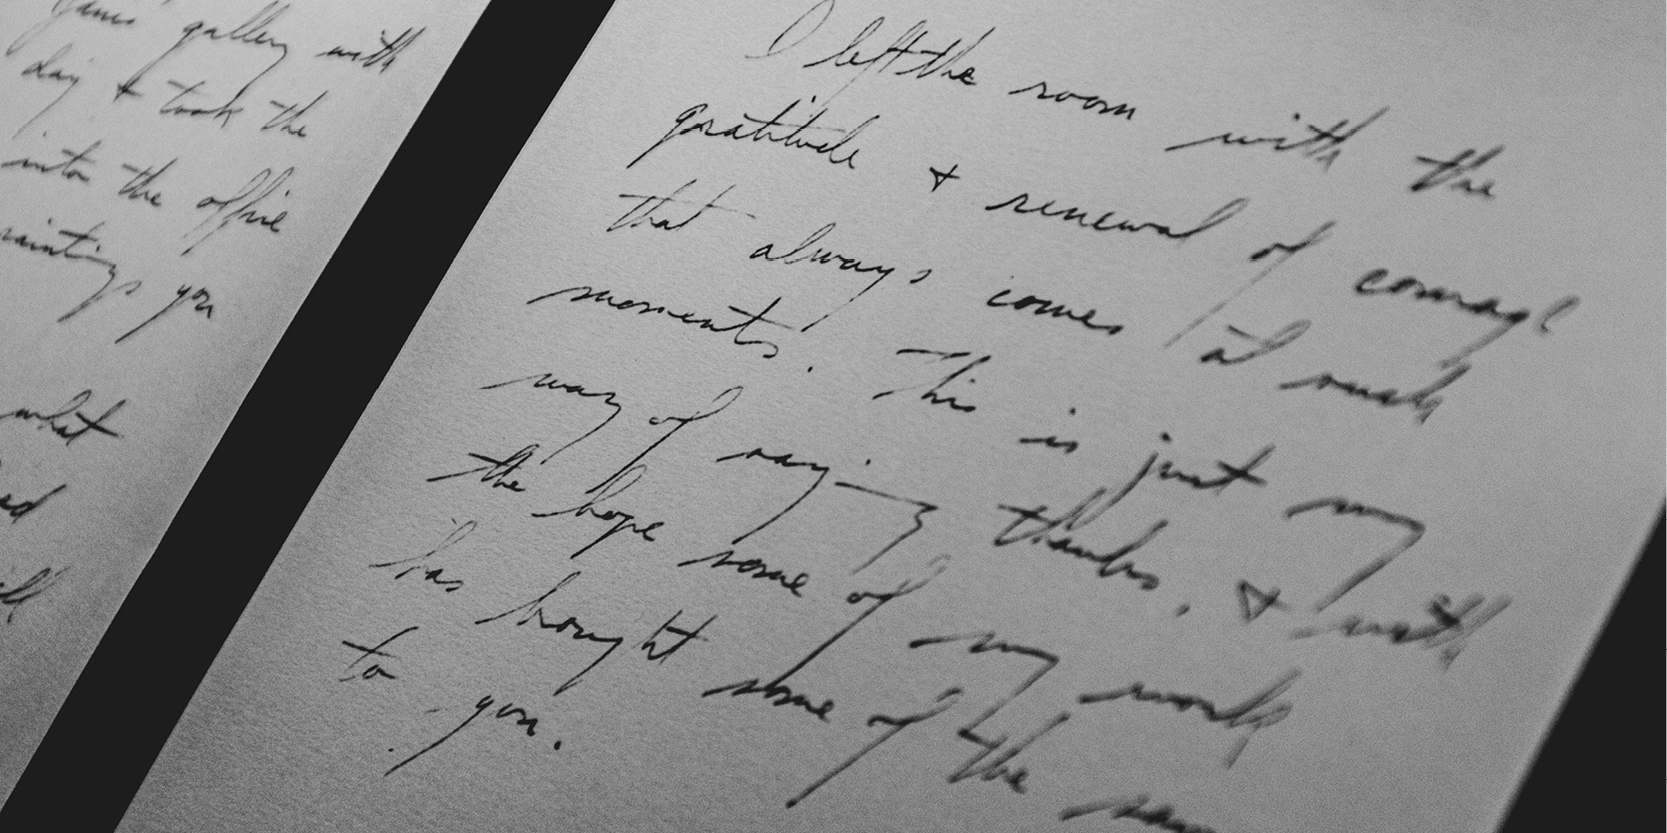 Janis' gallery with
day & took the
into the office
paintings you
what
ed
ll
I left the room with the
gratitude & renewal of courage
that always comes at such
moments. This is just my
way of saying thanks, & with
the hope some of my work
has brought some of the same
to you.